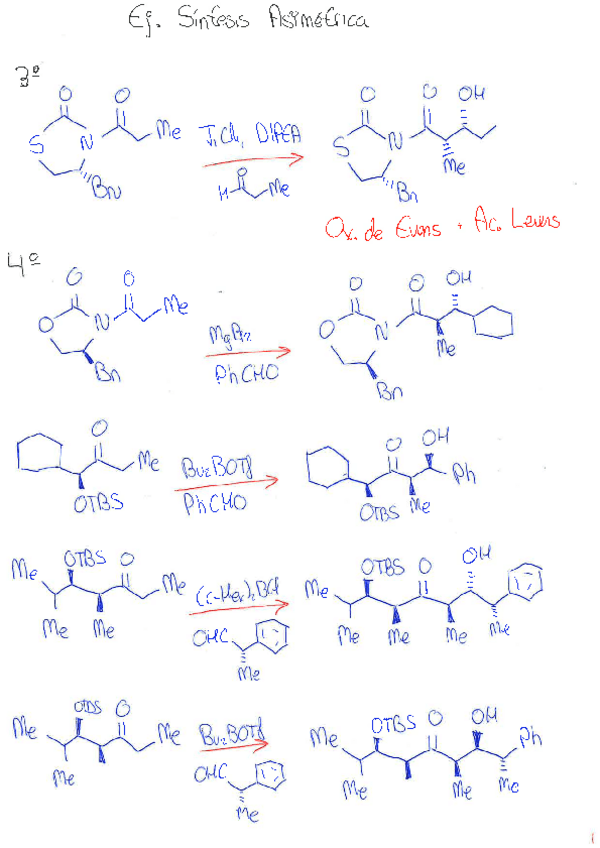 Ej. Síntesis Asimétrica
3º
O O
S N Me
Bn
TiCl4 DIPEA
H O Me
O O OH
S N
Me
Bn
Ox. de Evans + Ac. Lewis
4º
O O
O N Me
Bn
PhCHO
O O OH
O N
Me
Bn
O
Me
OTBS
Bu2BOTf
PhCHO
O OH
Ph
OTBS Me
Me OTBS O Me
Me Me
(c-Hex)2BCl
OHC
Me
OTBS O OH
Me
Me Me Me Me
Me OTBS O Me
Me
Bu2BOTf
OHC
Me
OTBS O OH
Me Ph
Me Me Me